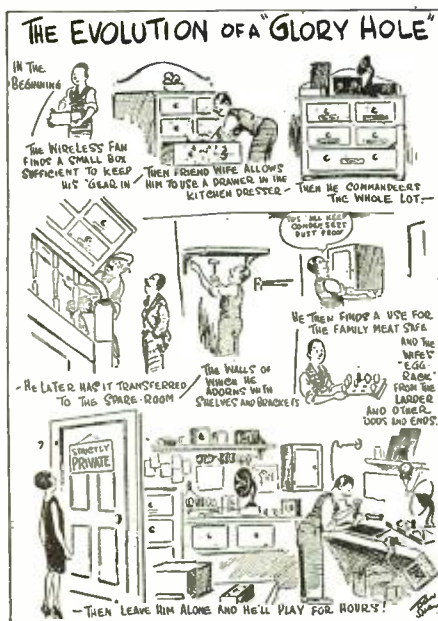 THE EVOLUTION OF A "GLORY HOLE"
IN THE
BEGINNING
THE WIRELESS FAN
FINDS A SMALL BOX
SUFFICIENT TO KEEP
HIS "GEAR IN
THEN FRIEND WIFE ALLOWS
HIM TO USE A DRAWER IN THE
KITCHEN DRESSER -
THEN HE COMMANDEERS
THE WHOLE LOT -
- HE LATER HAS IT TRANSFERRED
TO THE SPARE-ROOM
THE WALLS OF
WHICH HE
ADORNS WITH
SHELVES AND BRACKETS
THIS'LL KEEP
CONDENSERS
DUST PROOF
HE THEN FINDS A USE FOR
THE FAMILY MEAT SAFE
AND THE
WIFE'S
"EGG-
RACK"
FROM THE
LARDER
AND OTHER
ODDS AND ENDS.
?
STRICTLY
PRIVATE
- THEN LEAVE HIM ALONE AND HE'LL PLAY FOR HOURS!